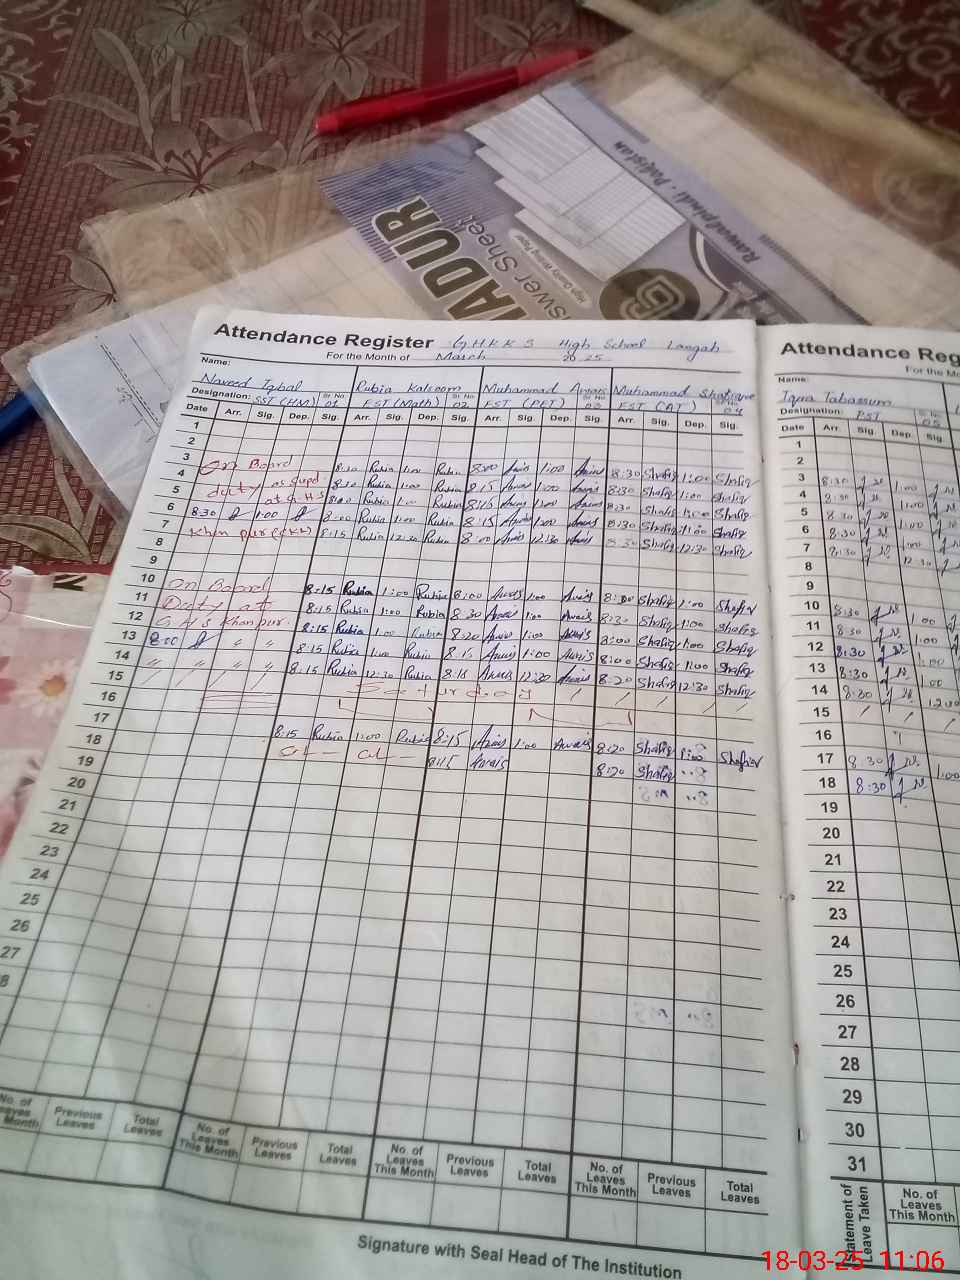 Rawalpindi - Pakistan
High Quality Writing Paper
Attendance Register G.H.K.K.S High School Langah
For the Month of March 2025
Name:
Naveed Iqbal Rubia Kalsoom Muhammad Awais Muhammad Shafique
Designation: SST (HM) Sr No. 01 EST (Math) Sr No. 02 EST (PET) Sr No. 03 EST (AT) Sr No. 04
Date Arr. Sig. Dep. Sig. Arr. Sig. Dep. Sig. Arr. Sig. Dep. Sig. Arr. Sig. Dep. Sig.
1
2
3 On Board 8:30 Rubia 1:00 Rubia 8:00 Awais 1:00 Awais 8:30 Shafiq 1:00 Shafiq
4 duty as Supd 8:30 Rubia 1:00 Rubia 8:15 Awais 1:00 Awais 8:30 Shafiq 1:00 Shafiq
5 at G.H.S 8:00 Rubia 1:00 Rubia 8:15 Awais 1:00 Awais 8:30 Shafiq 1:00 Shafiq
6 8:30 1:00 8:00 Rubia 1:00 Rubia 8:15 Awais 1:00 Awais 8:30 Shafiq 1:00 Shafiq
7 Khan pur 8:15 Rubia 12:30 Rubia 8:00 Awais 12:30 Awais 8:30 Shafiq 12:30 Shafiq
8
9
10 On Board 8:15 Rubia 1:00 Rubia 8:00 Awais 1:00 Awais 8:00 Shafiq 1:00 Shafiq
11 Duty at 8:15 Rubia 1:00 Rubia 8:30 Awais 1:00 Awais 8:30 Shafiq 1:00 Shafiq
12 G.H.S Khanpur. 8:15 Rubia 1:00 Rubia 8:20 Awais 1:00 Awais 8:00 Shafiq 1:00 Shafiq
13 8:00 " " 8:15 Rubia 1:00 Rubia 8:15 Awais 1:00 Awais 8:00 Shafiq 1:00 Shafiq
14 " " " " 8:15 Rubia 12:30 Rubia 8:15 Awais 12:30 Awais 8:20 Shafiq 12:30 Shafiq
15 Saturday
16
17 8:15 Rubia 1:00 Rubia 8:15 Awais 1:00 Awais 8:20 Shafiq 1:00 Shafiq
18 8:15 Awais 8:20 Shafiq
19
20
21
22
23
24
25
26
27
8
No. of Leaves This Month Previous Leaves Total Leaves No. of Leaves This Month Previous Leaves Total Leaves No. of Leaves This Month Previous Leaves Total Leaves No. of Leaves This Month Previous Leaves Total Leaves
Signature with Seal Head of The Institution
Attendance Reg
For the Mo
Name:
Iqra Tabassum
Designation: PST Sr No. 05
Date Arr. Sig. Dep. Sig
1
2
3 8:30 1:00
4 8:30 1:00
5 8:30 1:00
6 8:30 1:00
7 8:30 12:30
8
9
10 8:30
11 8:30 1:00
12 8:30 1:00
13 8:30 1:00
14 8:30
15
16
17 8:30 1:00
18 8:30
19
20
21
22
23
24
25
26
27
28
29
30
31
Statement of Leave Taken
No. of Leaves This Month
18-03-25 11:06